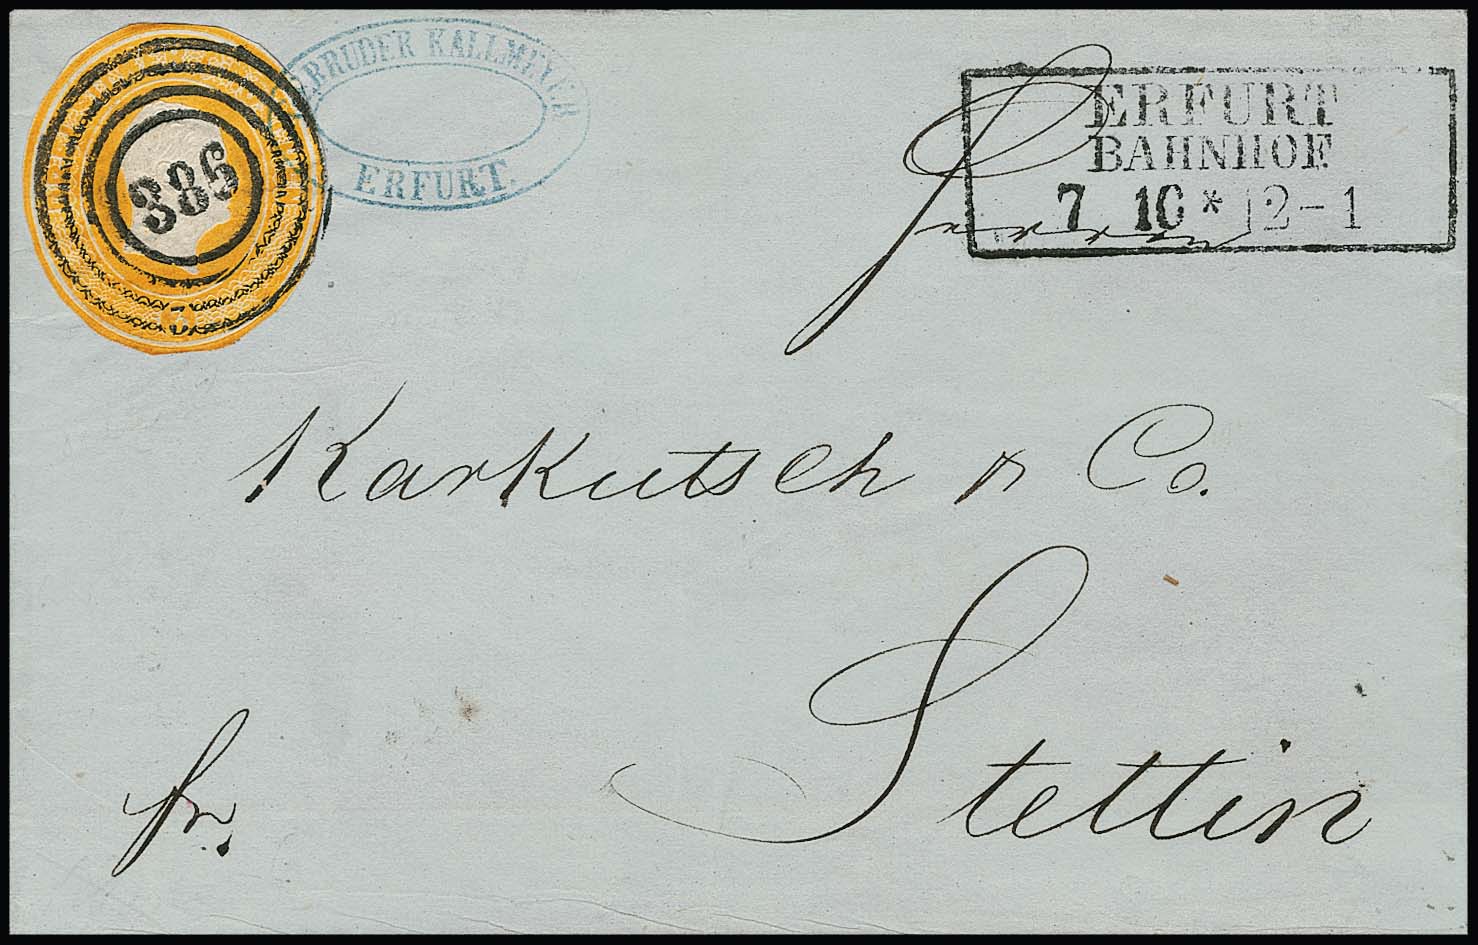 386
3
GEBRÜDER KALLMEYER
ERFURT.
ERFURT
BAHNHOF
7 10 * 12-1
Karkutsch & Co.
Stettin
fr.